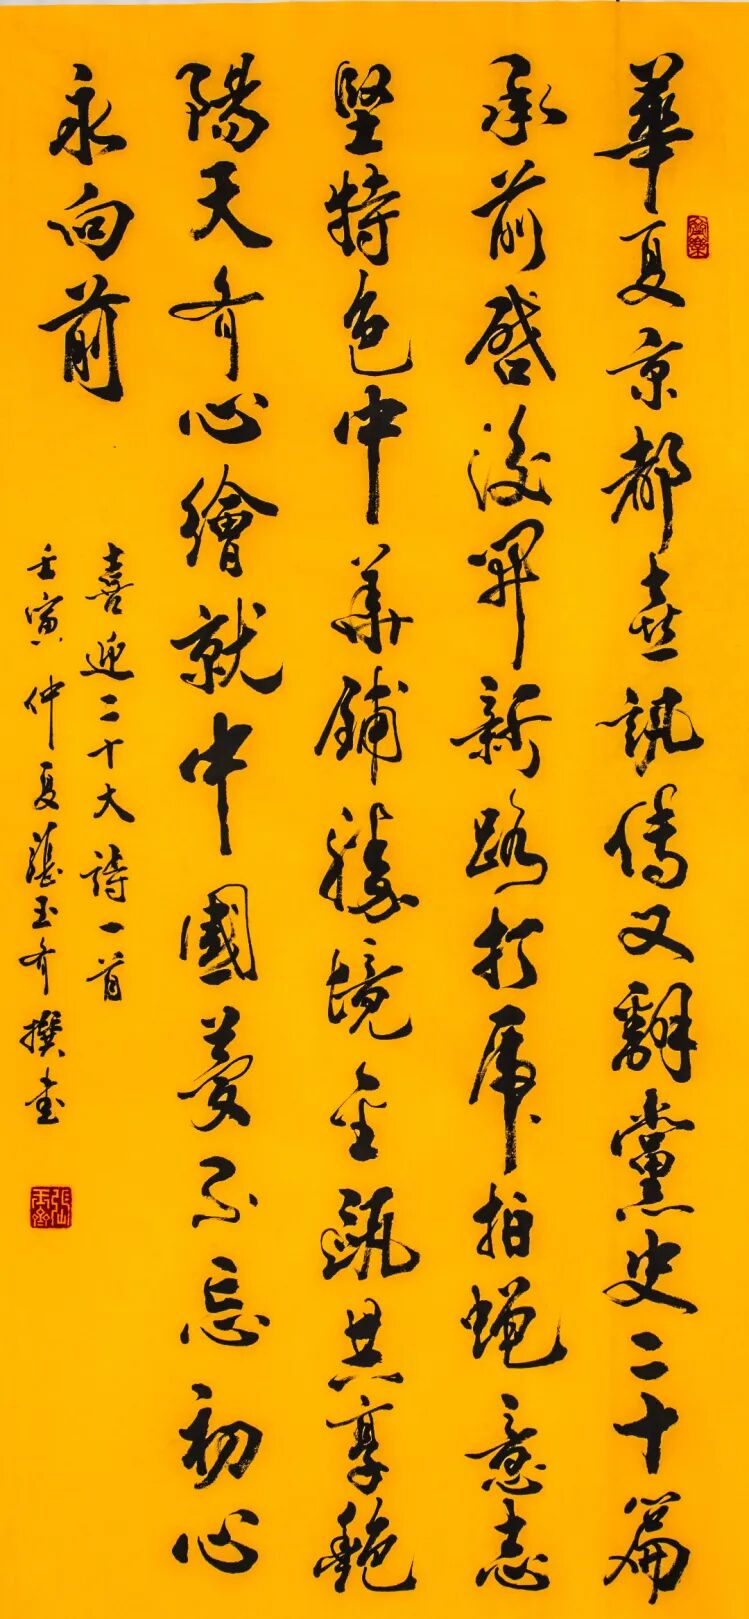 華夏京都喜訊傳又翻黨史二十篇
承前啓後開新路打虎拍蝇意志
坚特色中華鋪勝境金甌共享艳
陽天齐心繪就中國夢不忘初心
永向前
喜迎二十大詩一首
壬寅仲夏張玉齐撰書